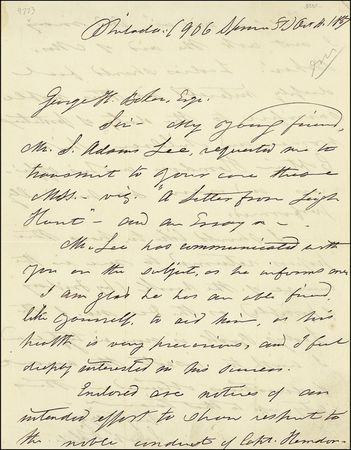 9223
Philada. (906 Spruce St) Oct 4. 1857
George H. Boker, Esq.
Sir – My young friend,
Mr. S. Adams Lee, requested me to
transmit to your care these
MSS. – viz. "A letter from Leigh
Hunt" – and an Essay on –
Mr. Lee has communicated with
you on the subject, as he informs me.
I am glad he has an able friend
like yourself, to aid him, as his
health is very precarious, and I feel
deeply interested in his success.
Enclosed are notices of an
intended effort to show respect to
the noble conduct of Capt. Herndon –